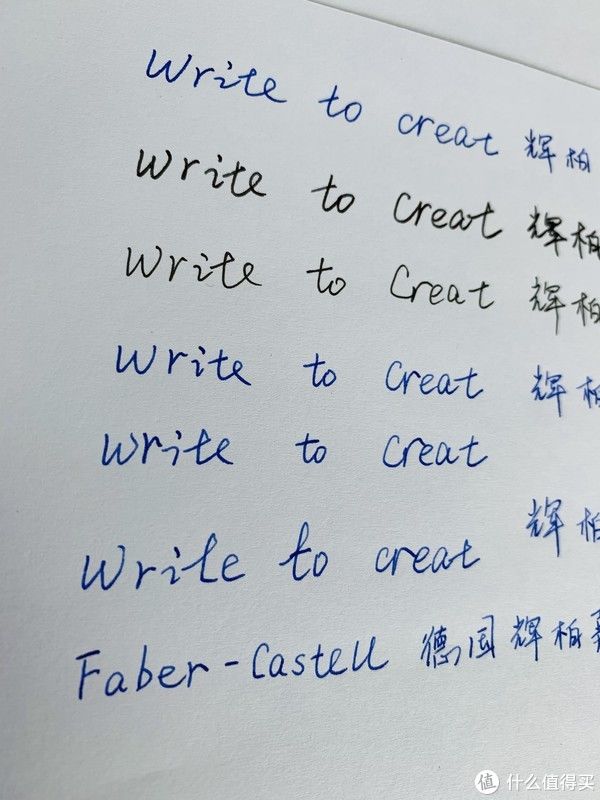 Write to creat 辉柏
Write to Creat 辉柏
Write to Creat 辉柏
Write to Creat 辉柏
Write to Creat
Write to creat 辉柏
Faber-Castell 德国辉柏
值 什么值得买